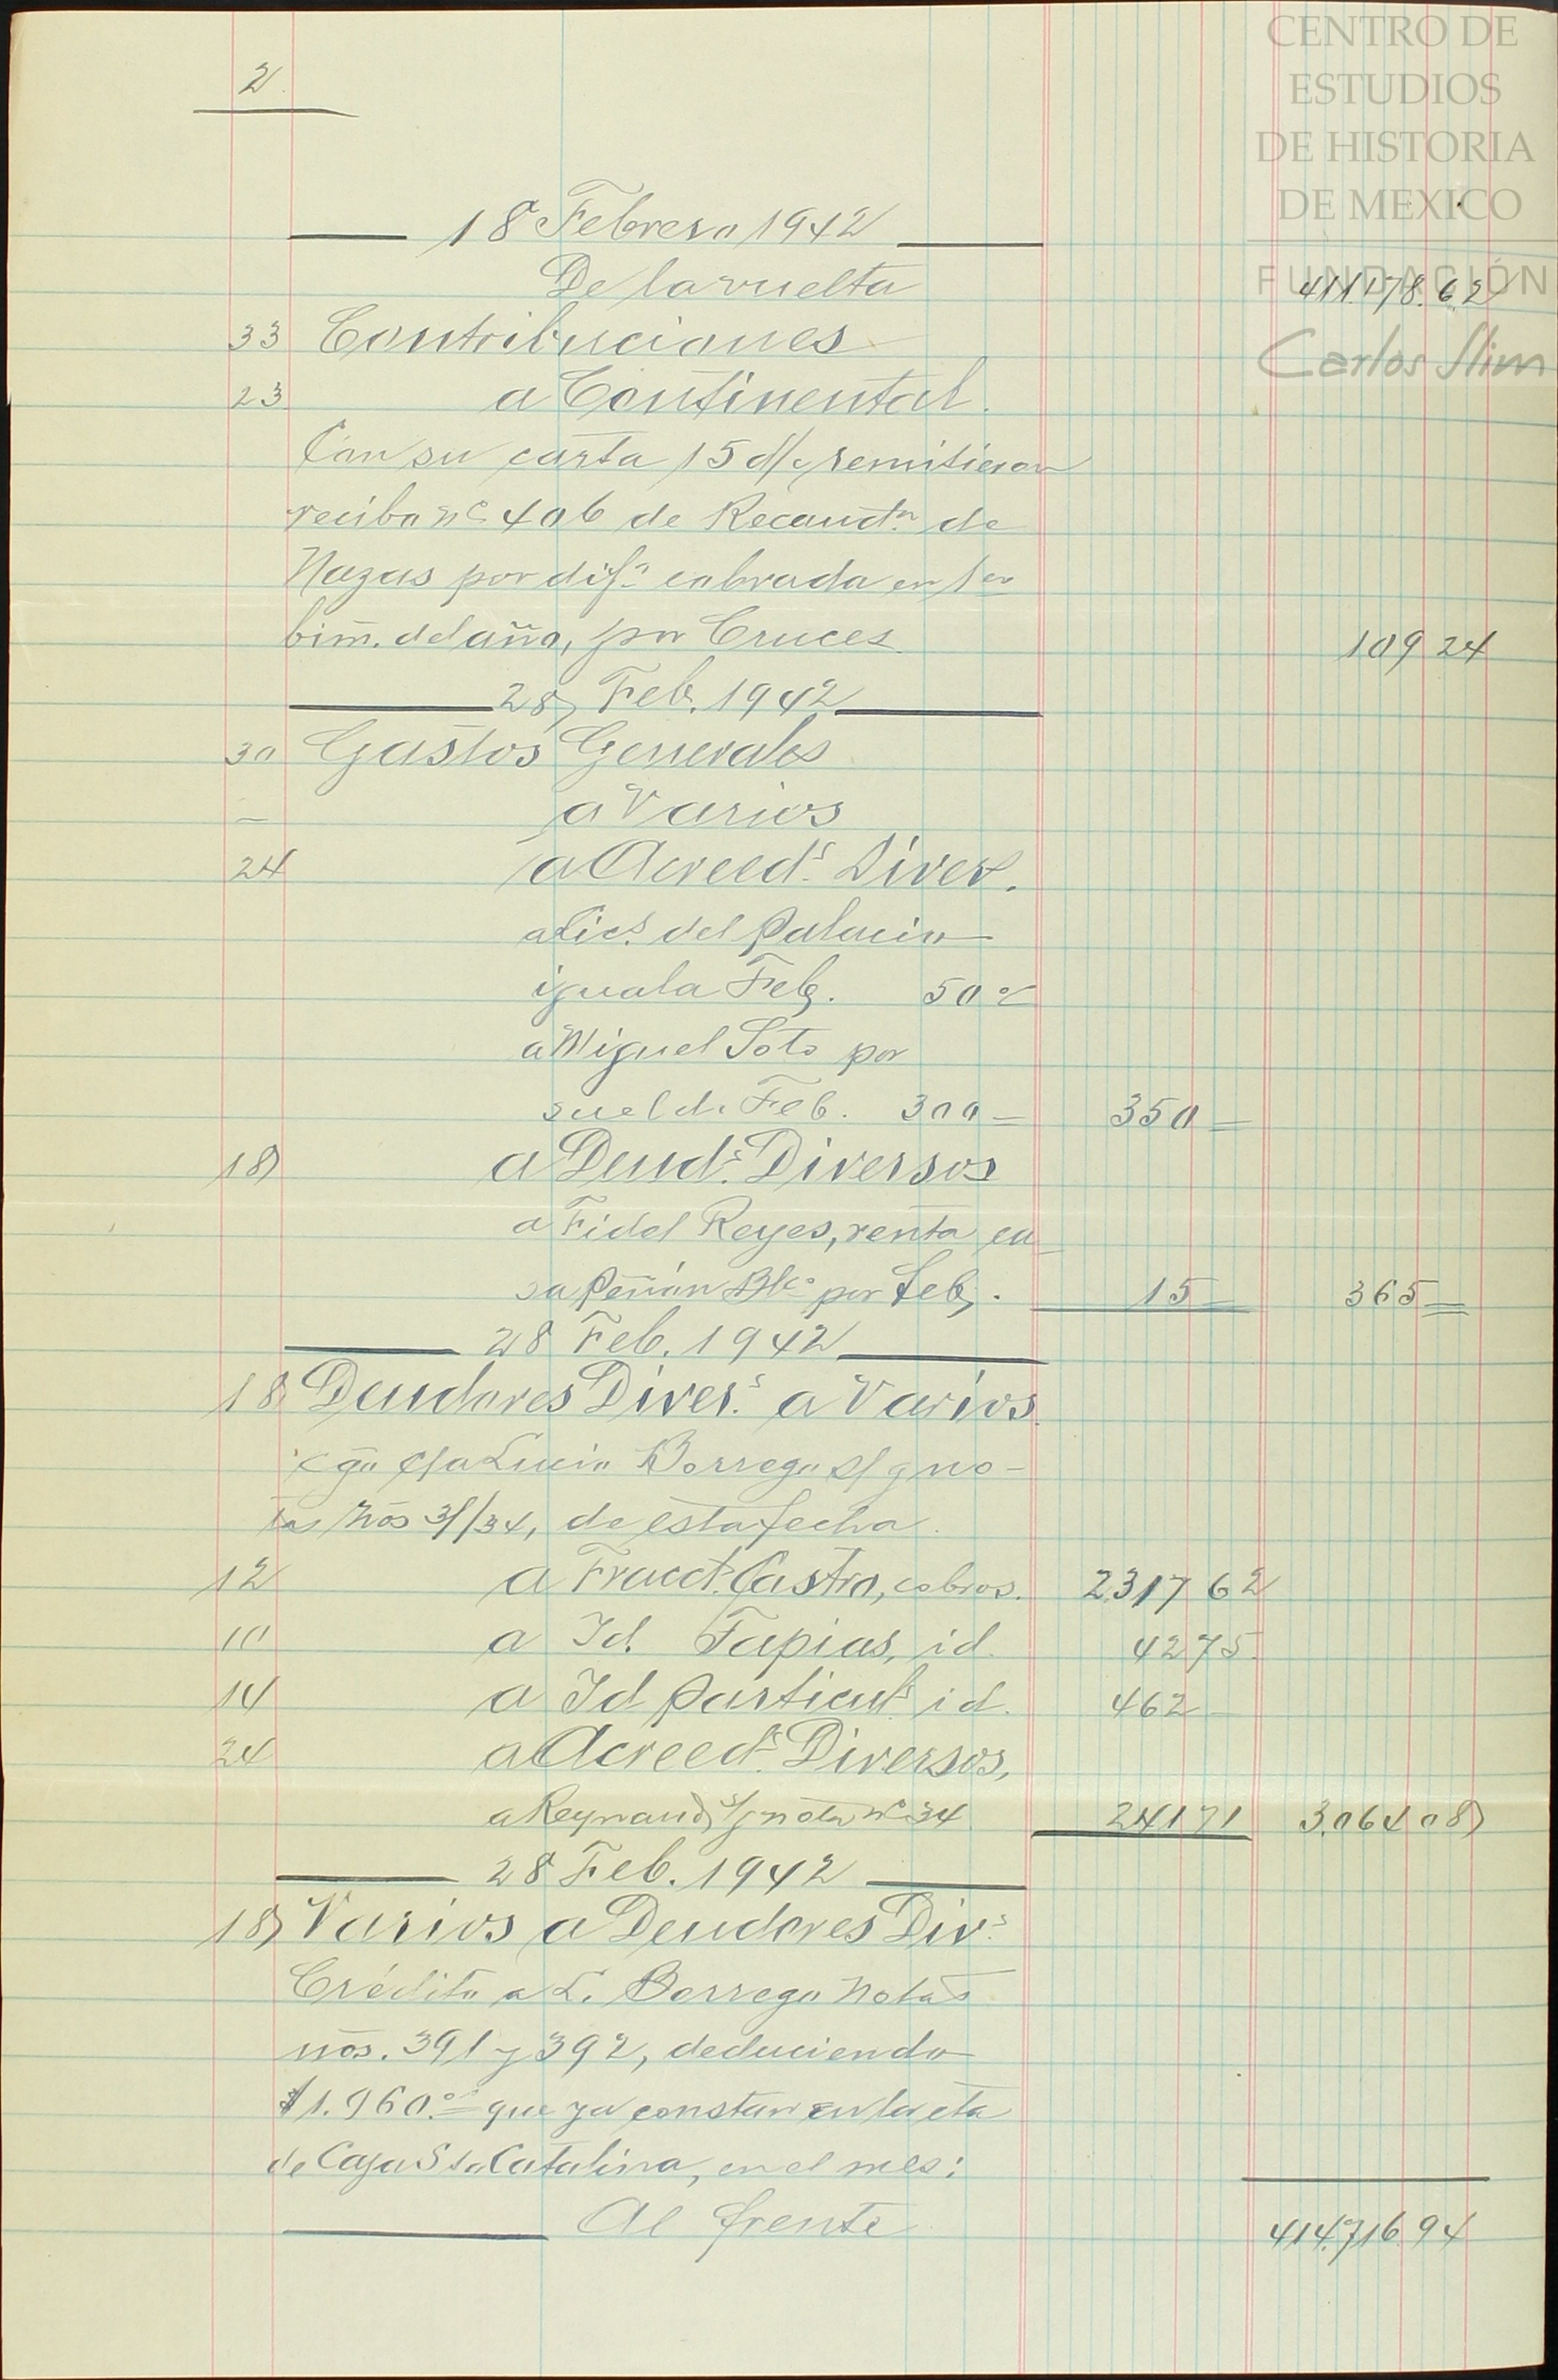 CENTRO DE
ESTUDIOS
DE HISTORIA
DE MEXICO
FUNDACIÓN
Carlos Slim
2
18 Febrero 1942
De la vuelta 411.178.62
33 Contribuciones
23 a Continental.
Con su carta 15 d/c remitieron
recibo nº 406 de Recaudn. de
Nazas por difª cobrada en 1er
bim. del año, por Cruces. 109 24
28 Feb. 1942
30 Gastos Generales
— a Varios
24 a Acreeds. Divers.
a Lics. del Palacio
iguala Feb. 50 —
a Miguel Soto por
sueldo Feb. 300 — 350 —
18 a Deuds. Diversos
a Fidel Reyes, renta ca-
sa Peñón Blco por Feb. 15 — 365 —
28 Feb. 1942
18 Deudores Divers. a Varios.
cgo Lucio Borrego s/ no-
tas nos 31/34, de esta fecha.
12 a Fracct. Castro, cobros. 2.317 62
10 a Id. Tapias, id. 42 75
14 a Id Particuls. id. 462 —
24 a Acreeds. Diversos,
a Reynaud s/ nota nº 34 241 71 3.064 08
28 Feb. 1942
18 Varios a Deudores Divs.
Crédito a L. Borrego notas
nos. 391 y 392, deduciendo
$1.960.00 que ya constan en la cta
de Caja Sta Catalina, en el mes:
Al frente 414.716.94